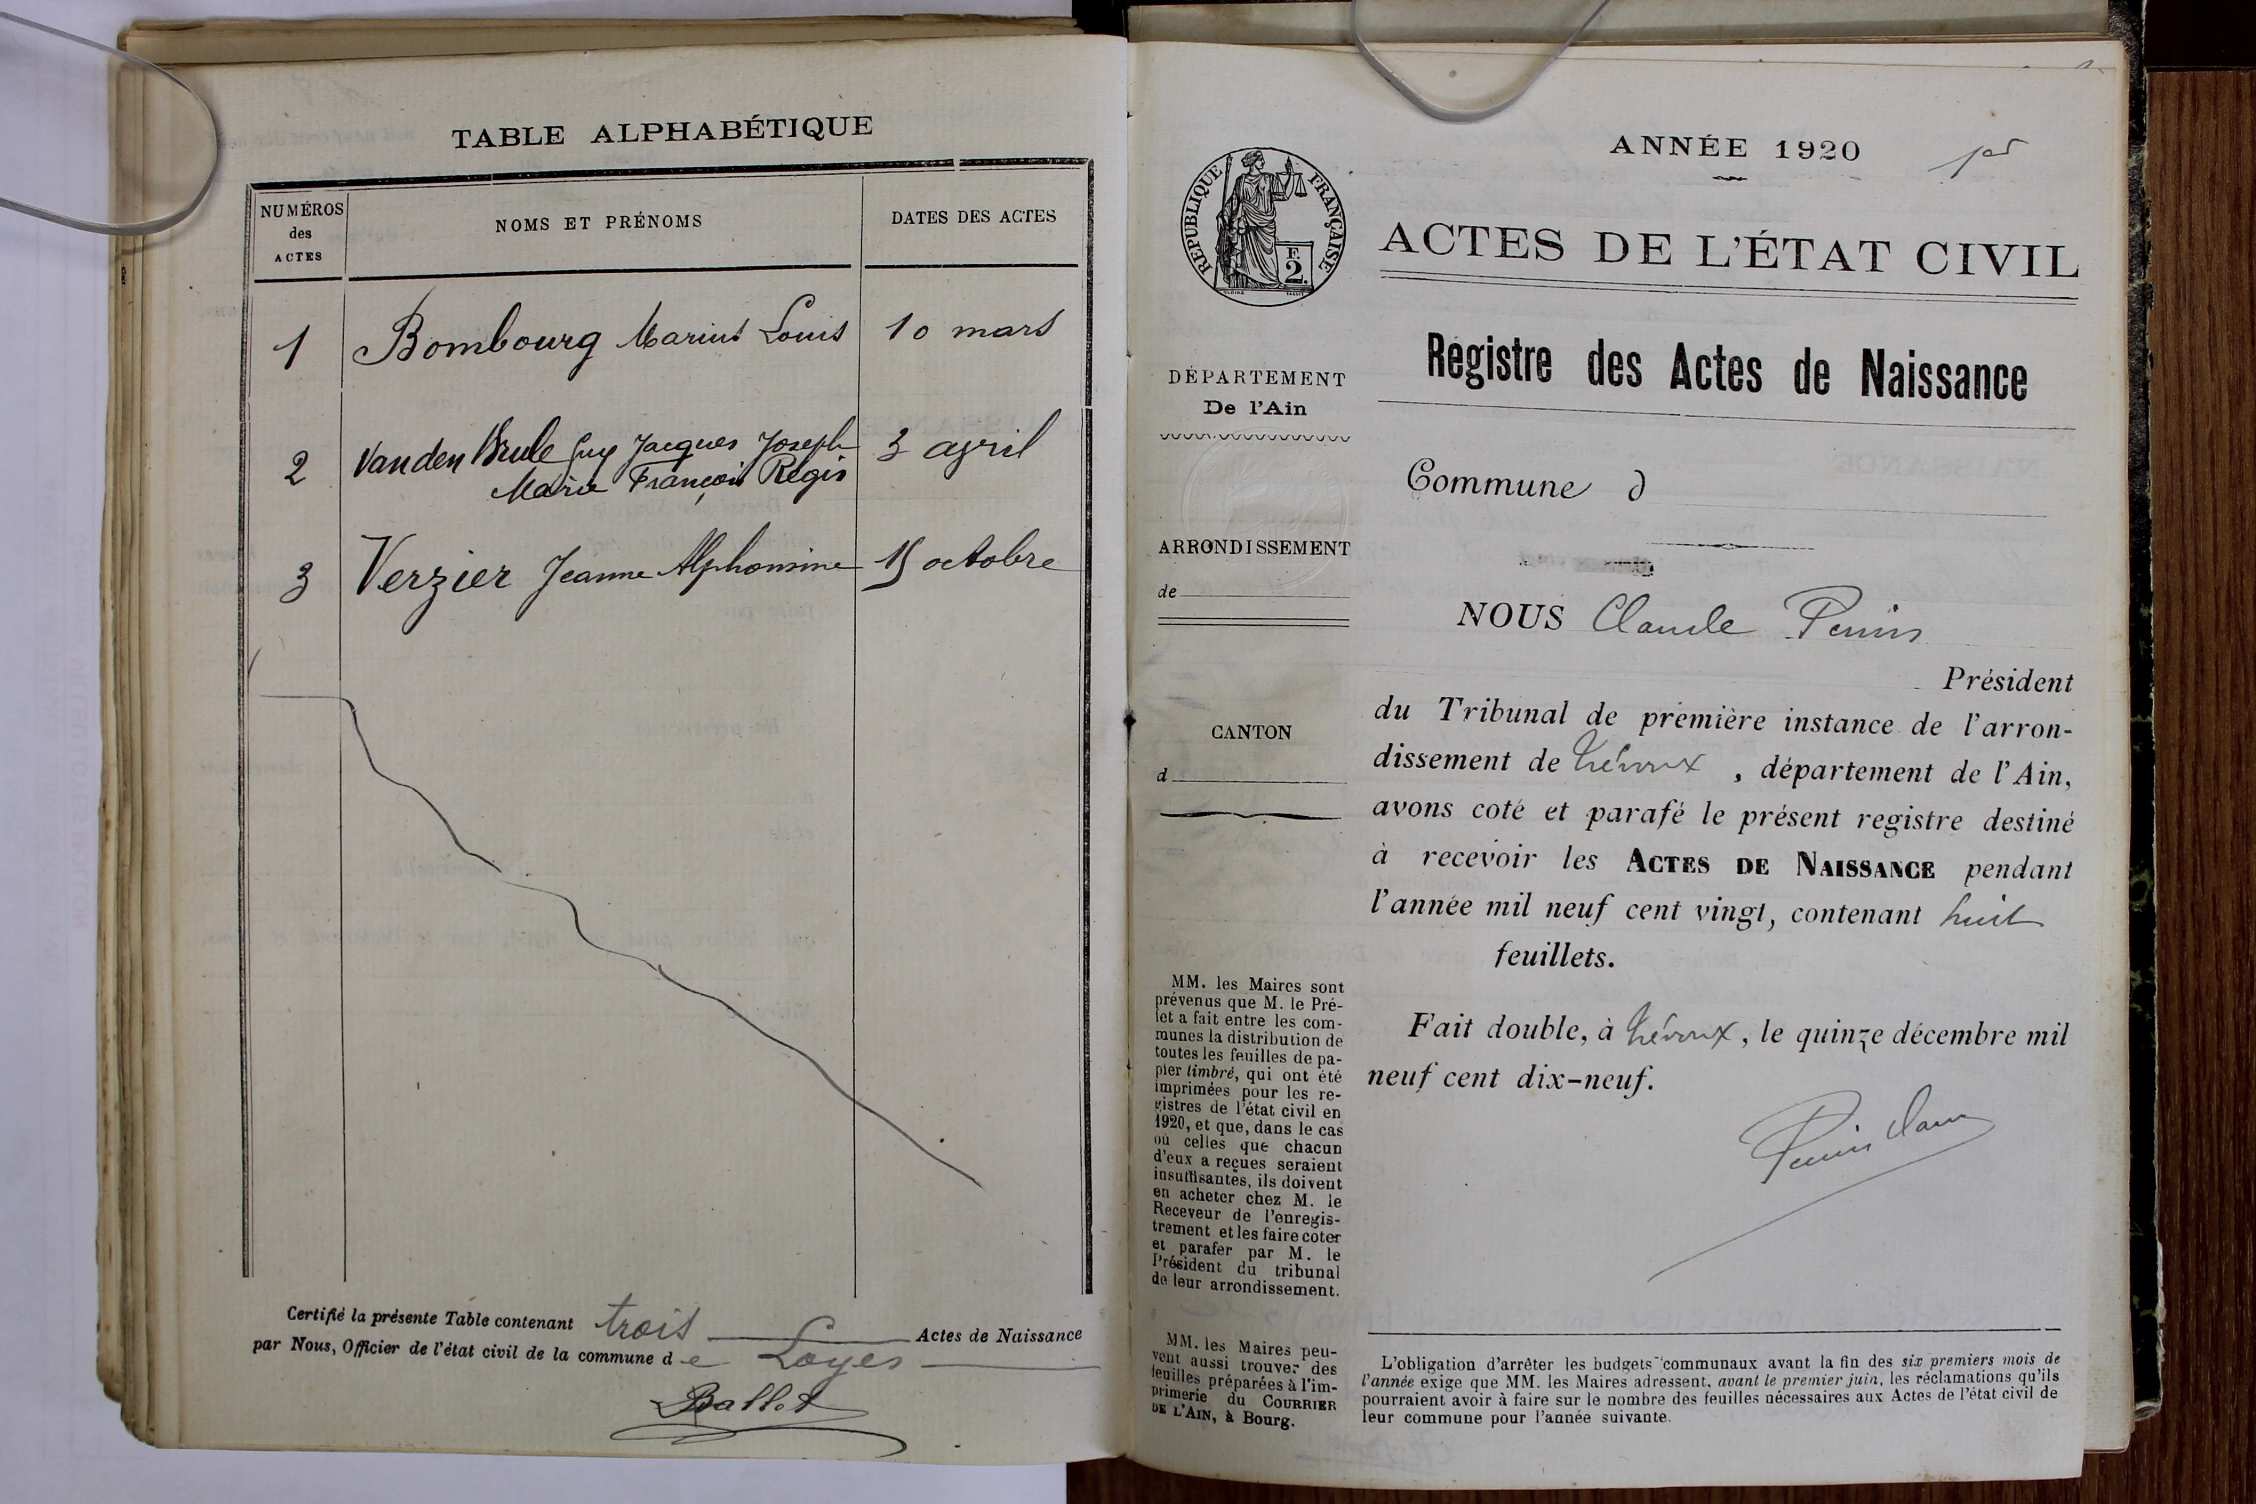 TABLE ALPHABÉTIQUE
NUMÉROS
des
ACTES
NOMS ET PRÉNOMS
DATES DES ACTES
1 Bombourg Marius Louis 10 mars
2 Van den Brule Guy Jacques Joseph 3 avril
Marie François Régis
3 Verzier Jeanne Alphonsine 15 octobre
Certifié la présente Table contenant trois Actes de Naissance
par Nous, Officier de l'état civil de la commune de Loyes
Ballet
ANNÉE 1920
1er
RÉPUBLIQUE FRANÇAISE
F.
2.
ACTES DE L'ÉTAT CIVIL
Registre des Actes de Naissance
DÉPARTEMENT
De l'Ain
Commune d
ARRONDISSEMENT
de
CANTON
d
NOUS Claude
Président
du Tribunal de première instance de l'arron-
dissement de Trévoux, département de l'Ain,
avons coté et parafé le présent registre destiné
à recevoir les ACTES DE NAISSANCE pendant
l'année mil neuf cent vingt, contenant huit
feuillets.
Fait double, à Trévoux, le quinze décembre mil
neuf cent dix-neuf.
MM. les Maires sont
prévenus que M. le Pré-
fet a fait entre les com-
munes la distribution de
toutes les feuilles de pa-
pier timbré, qui ont été
imprimées pour les re-
gistres de l'état civil en
1920, et que, dans le cas
où celles que chacun
d'eux a reçues seraient
insuffisantes, ils doivent
en acheter chez M. le
Receveur de l'enregis-
trement et les faire coter
et parafer par M. le
Président du tribunal
de leur arrondissement.
MM. les Maires peu-
vent aussi trouver des
feuilles préparées à l'im-
primerie du COURRIER
DE L'AIN, à Bourg.
L'obligation d'arrêter les budgets communaux avant la fin des six premiers mois de
l'année exige que MM. les Maires adressent, avant le premier juin, les réclamations qu'ils
pourraient avoir à faire sur le nombre des feuilles nécessaires aux Actes de l'état civil de
leur commune pour l'année suivante.